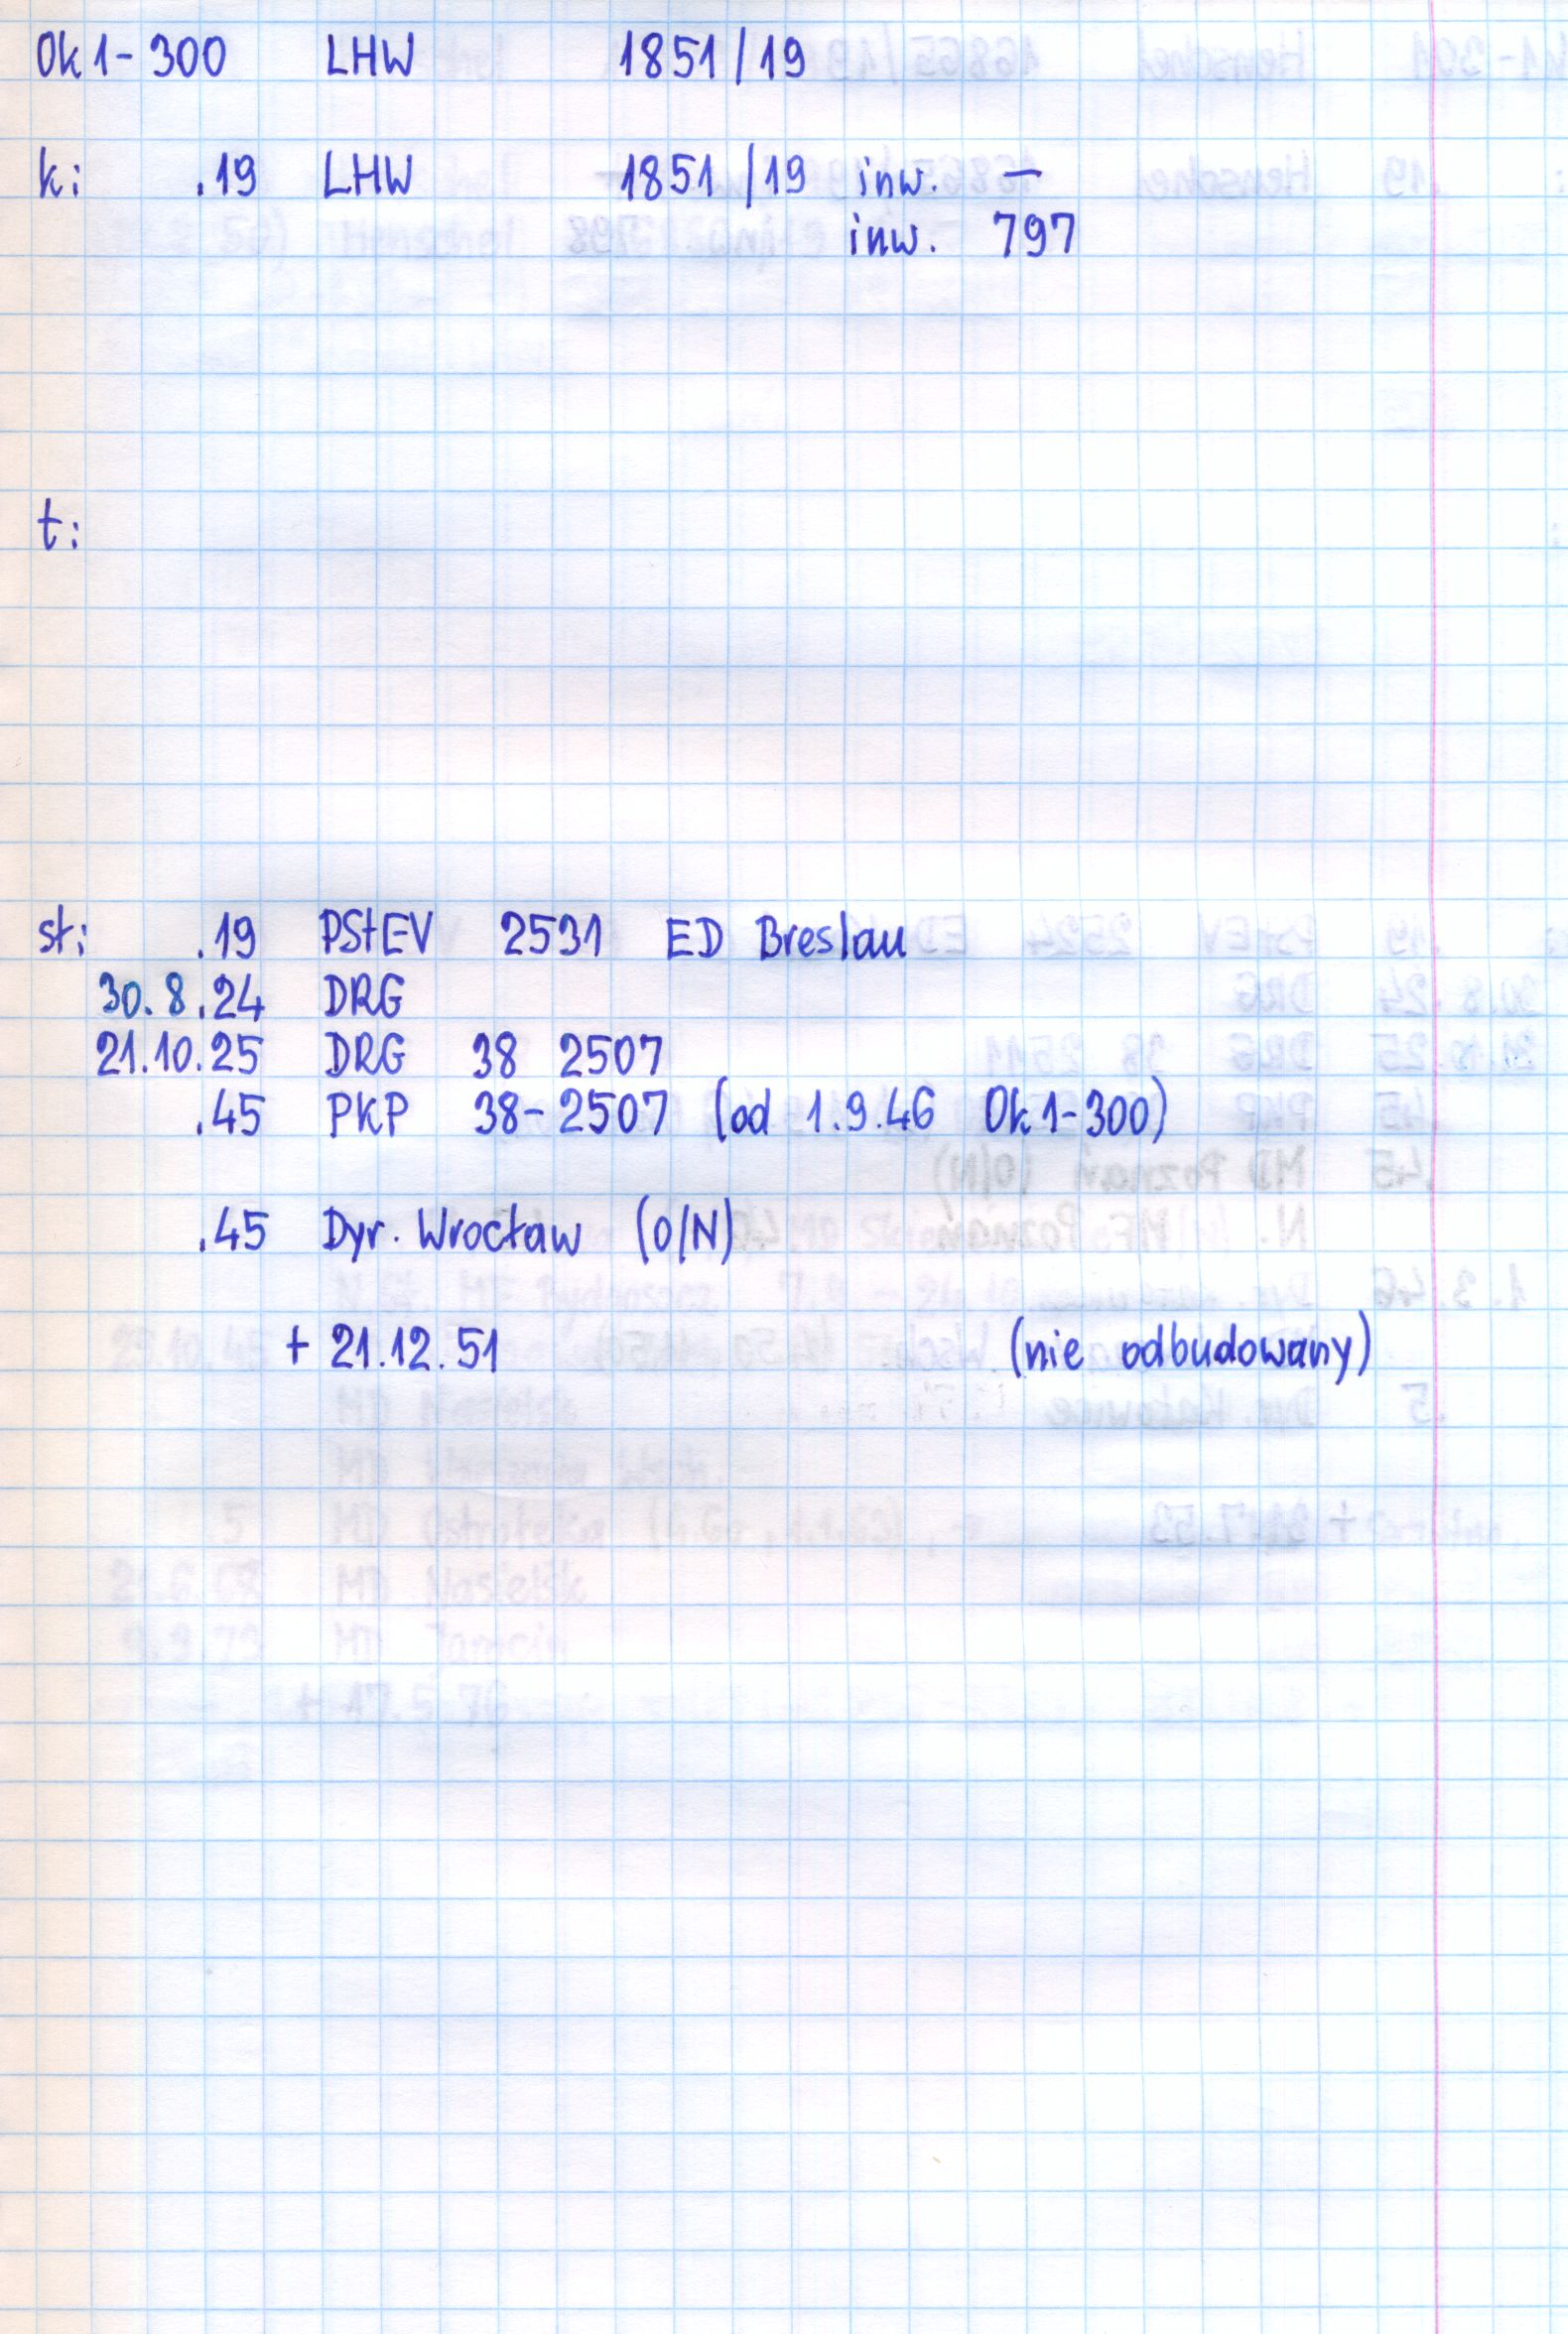 Ok1-300 LHW 1851/19
k: .19 LHW 1851/19 inw. –
inw. 797
t:
st: .19 PStEV 2531 ED Breslau
30.8.24 DRG
21.10.25 DRG 38 2507
.45 PKP 38-2507 (od 1.9.46 Ok1-300)
.45 Dyr. Wrocław (O/N)
+ 21.12.51 (nie odbudowany)